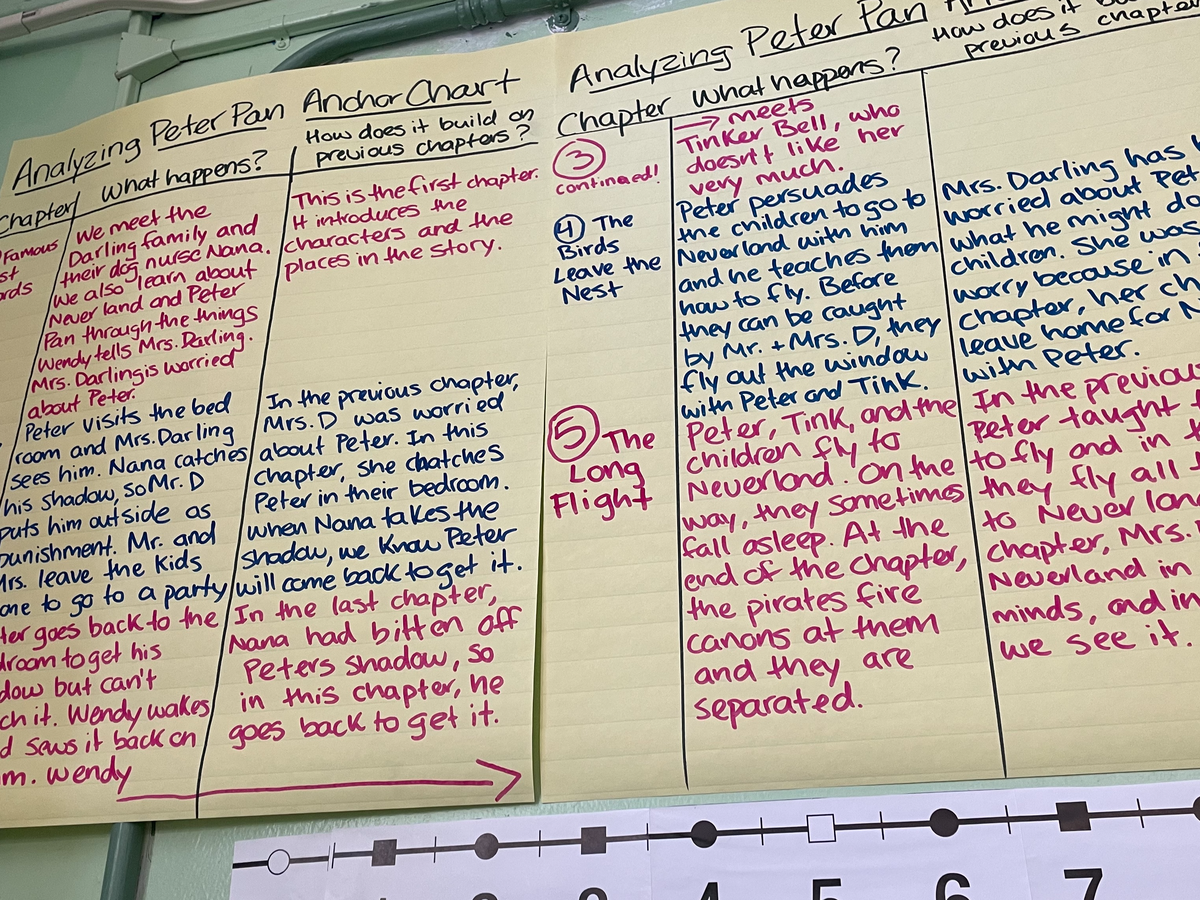 Analyzing Peter Pan Anchor Chart
Chapter
What happens?
How does it build on
previous chapters?
Famous
We meet the
Darling family and
their dog nurse Nana.
We also learn about
Never land and Peter
Pan through the things
Wendy tells Mrs. Darling.
Mrs. Darling is worried
about Peter.
This is the first chapter.
It introduces the
characters and the
places in the story.
Peter visits the bed
room and Mrs. Darling
sees him. Nana catches
his shadow, so Mr. D
puts him outside as
punishment. Mr. and
Mrs. leave the kids
to go to a party
In the previous chapter,
Mrs. D was worried
about Peter. In this
chapter, she chatches
Peter in their bedroom.
when Nana takes the
shadow, we know Peter
will come back to get it.
goes back to the
to get his
but can't
it. Wendy wakes
saws it back on
Wendy
In the last chapter,
Nana had bitten off
Peters shadow, so
in this chapter, he
goes back to get it.
Analyzing Peter Pan
Chapter
What happens?
How does it
previous chapters
3
continued!
→ meets
Tinker Bell, who
doesn't like her
very much.
4 The
Birds
Leave the
Nest
Peter persuades
the children to go to
Neverland with him
and he teaches them
how to fly. Before
they can be caught
by Mr. + Mrs. D, they
fly out the window
with Peter and Tink.
Mrs. Darling has
worried about
what he might do
children. She was
worry because in
chapter, her
leave home for
with Peter.
5 The
Long
Flight
Peter, Tink, and the
children fly to
Neverland. On the
way, they sometimes
fall asleep. At the
end of the chapter,
the pirates fire
canons at them
and they are
separated.
In the
Peter taught
to fly and in
they fly all
to Never
chapter, Mrs.
Neverland in
minds, and in
we see it.
4
5
6
7